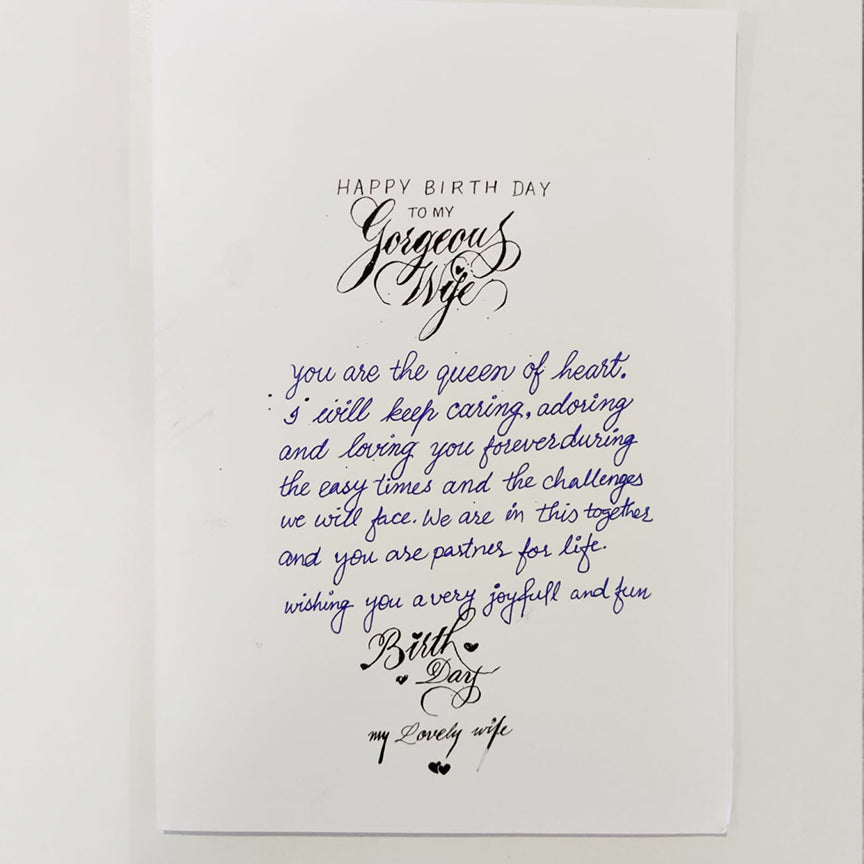 HAPPY BIRTH DAY
TO MY
Gorgeous
Wife
you are the queen of heart.
I will keep caring, adoring
and loving you forever during
the easy times and the challenges
we will face. We are in this together
and you are partner for life.
wishing you a very joyfull and fun
Birth
Day
my Lovely wife